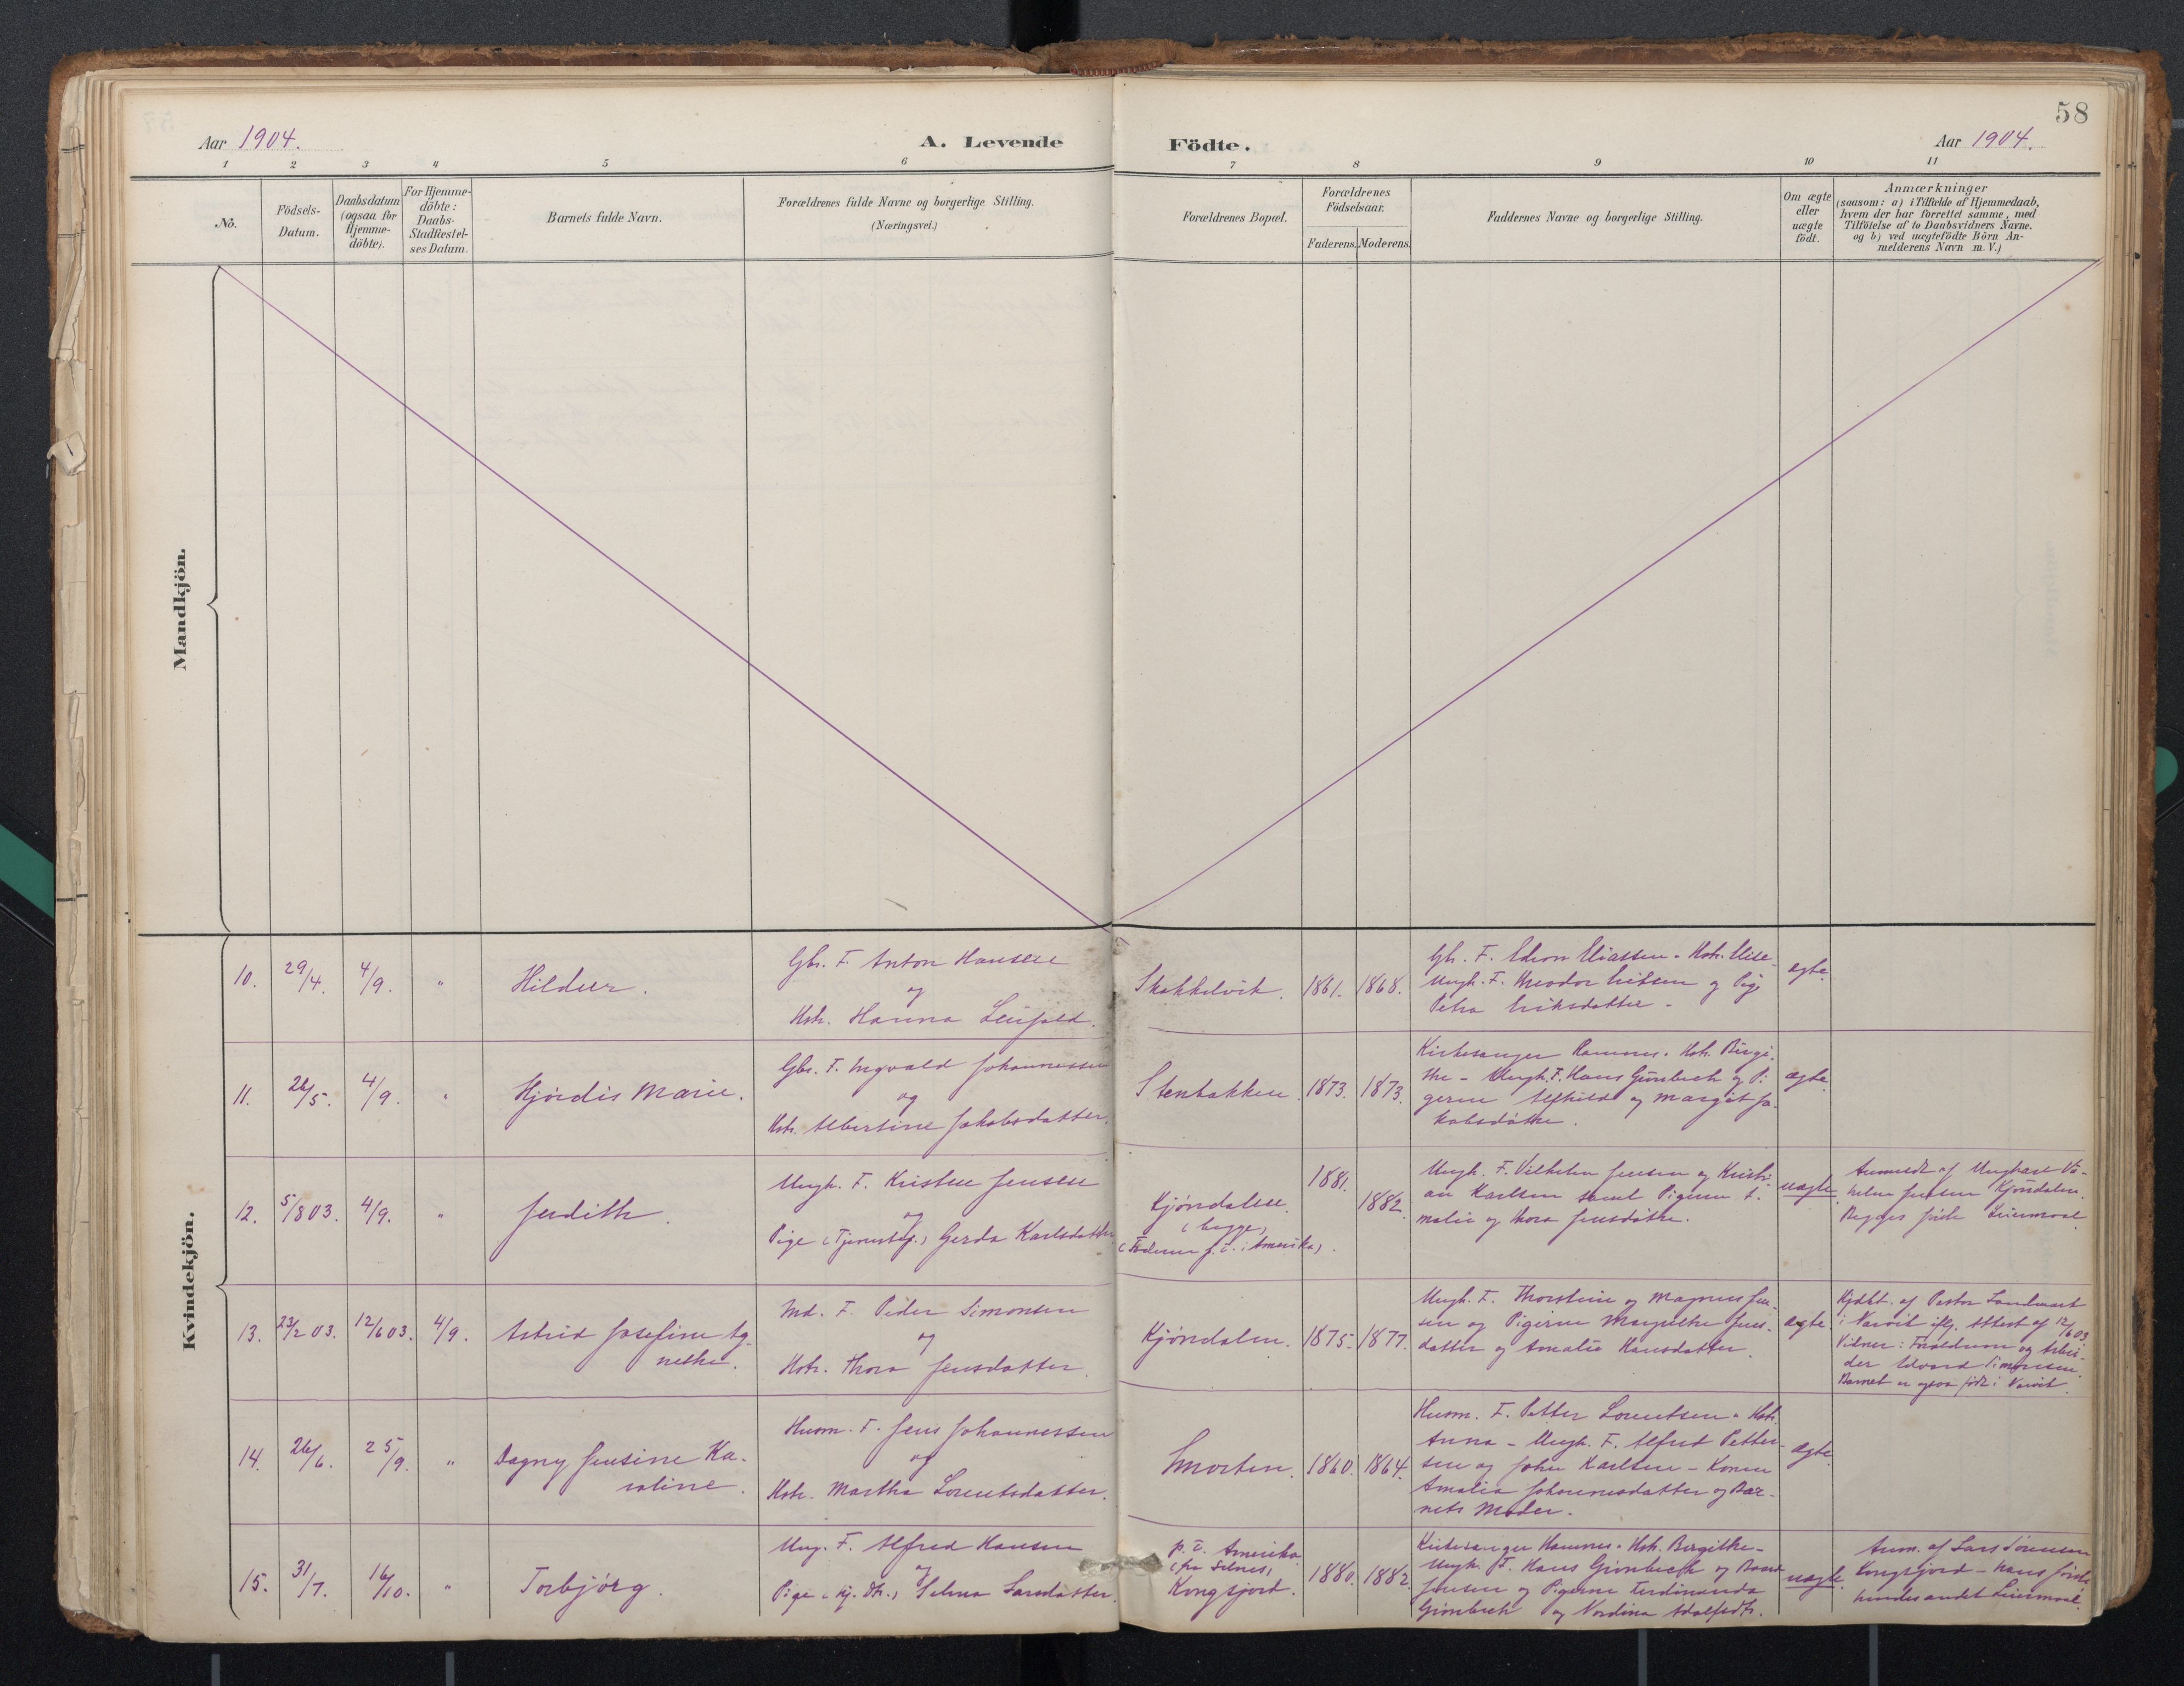 58
Aar 1904.
A. Levende
Födte.
Aar 1904.
1 2 3 4 5 6 7 8 9 10 11
No.
Födsels-
Datum.
Daabsdatum
(ogsaa for
Hjemme-
döbte).
For Hjemme-
döbte:
Daabs-
Stadfæstel-
ses Datum.
Barnets fulde Navn.
Forældrenes fulde Navne og borgerlige Stilling.
(Næringsvei.)
Forældrenes Bopæl.
Forældrenes
Födselsaar.
Faderens. Moderens.
Faddernes Navne og borgerlige Stilling.
Om ægte
eller
uægte
födt.
Anmærkninger
(saasom: a) i Tilfælde af Hjemmedaab,
hvem der har forrettet samme, med
Tilföielse af to Daabsvidners Navne.
og b) ved uægtefödte Börn An-
melderens Navn m. V.)
Mandkjön.
Kvindekjön.
10. 29/4. 4/9. " Hildur.
Gbr. F. Anton Hansen
og
Hstr. Hanna Leufald.
Skakkelvik. 1861. 1868.
Gbr. F. Edvon Eliassen. Hstr. Elise
Ungk. F. Theodor Eriksen og Pig.
Petra Eriksdatter -
ægte
11. 26/5. 4/9. " Hjördis Marie.
Gbr. F. Ingvald Johannessen
og
Hstr. Albertine Jakobsdatter.
Stenbakken. 1873. 1873.
Kirkesanger Hamnes. Hstr. Birgi-
the - Ungk. F. Hans Grönbech og Pi-
gerne Alfhild og Margit Ja-
kobsdötre.
ægte
12. 5/8 03. 4/9. " Judith.
Ungk. F. Kristen Jensen
og
Pige (Tjenestep.) Gerda Karlsdatter
Kjöndalen.
(begge)
(Faderen p. t. i Amerika).
1881. 1882.
Ungk. F. Vilhelm Jensen og Kristi-
an Karlsen samt Pigerne A-
malie og Thora Jensdötre.
uægte
Anmeldt af Ungkarl Vil-
helm Jensen Kjöndalen.
Begges förste Leiermaal
13. 23/2 03. 12/6 03. 4/9. Astrid Josefine Ag-
nethe.
Md. F. Peder Simonsen
og
Hstr. Thora Jensdatter.
Kjöndalen. 1875. 1877.
Ungk. F. Thorstein og Magnus Jen-
sen og Pigerne Margrethe Jens-
datter og Amalie Hansdatter.
ægte
Hjdbt. af Pastor Landmark
i Narvik iflg. Attest af 12/6 03
Vidner: Forældrene og Arbei-
der Edvard Simonsen.
Barnet er ogsaa födt i Narvik.
14. 26/6. 25/9. " Dagny Jensine Ka-
roline.
Husm. F. Jens Johannessen
og
Hstr. Martha Lorentsdatter.
Smorten. 1860. 1864.
Husm. F. Petter Lorentsen. Hstr.
Anna - Ungk. F. Alfred Petter-
sen og Johu Karlsen - Konen
Amalia Johannesdatter og Bar-
nets Moder.
ægte
15. 31/7. 16/10. " Torbjörg.
Ung. F. Alfred Hansen
og
Pige (hj. Dtr.) Selma Larsdatter.
p. t. Amerika
(fra Selnes)
Kongsjord.
1880. 1882.
Kirkesanger Hamnes. Hstr. Birgithe-
Ungk. F. Hans Grönbech og
Jensen og Pigerne Ferdinanda
Grönbech og Nordina Adolfsdtr.
uægte.
Anm. af Lars Sörensen
Kongsjord - hans förste
hendes andet Leiermaal.